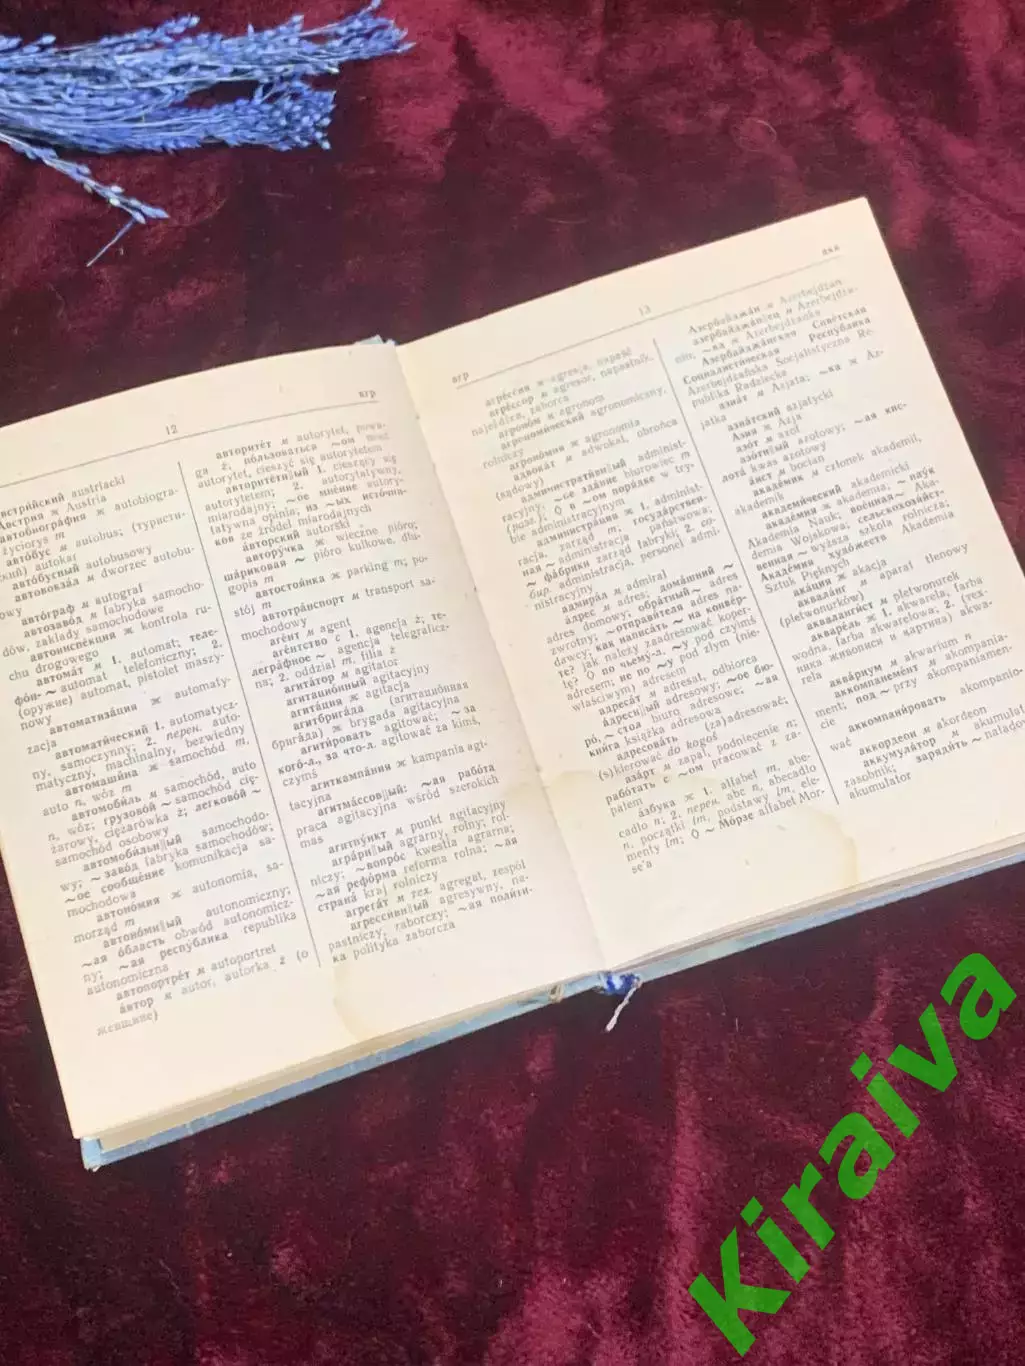 12
агр
австри́йский austriacki
А́встрия ж Austria
автобиогра́фия ж autobiogra-
życiorys m
авто́бус м autobus; (туристи-
ский) autokar
авто́бусный autobusowy
автовокза́л м dworzec autobu-
owy
авто́граф м autograf
автозаво́д м fabryka samocho-
dów, zakłady samochodowe
автоинспе́кция ж kontrola ru-
chu drogowego
автома́т м 1. automat; теле-
фо́н-~ automat telefoniczny; 2.
(оружие) automat, pistolet maszy-
nowy
автоматиза́ция ж automaty-
zacja
автомати́ческий 1. automatycz-
ny, samoczynny; 2. перен. auto-
matyczny, machinalny, bezwiedny
автомаши́на ж samochód m,
auto n, wóz m
автомоби́ль м samochód, auto
n, wóz; грузово́й ~ samochód cię-
żarowy, ciężarówka ż; легково́й ~
samochód osobowy
автомоби́льный samochodo-
wy; ~ заво́д fabryka samochodów;
~ое сообще́ние komunikacja sa-
mochodowa
автоно́мия ж autonomia, sa-
morząd m
автоно́мн||ый autonomiczny;
~ая о́бласть obwód autonomicz-
ny; ~ая респу́блика republika
autonomiczna
автопортре́т м autoportret
а́втор м autor, autorka ż (о
женщине)
авторите́т м autorytet, powa-
ga ż; по́льзоваться ~ом mieć
autorytet, cieszyć się autorytetem
авторите́тн||ый 1. cieszący się
autorytetem; 2. autorytatywny,
miarodajny; ~ое мне́ние autory-
tatywna opinia; из ~ых исто́чни-
ков ze źródeł miarodajnych
а́вторский autorski
автору́чка ж wieczne pióro;
ша́риковая ~ pióro kulkowe, dłu-
gopis m
автостоя́нка ж parking m; po-
stój m
автотра́нспорт м transport sa-
mochodowy
аге́нт м agent
аге́нтство с 1. agencja ż; те-
легра́фное ~ agencja telegraficz-
na; 2. oddział m, filia ż
агита́тор м agitator
агитацио́нный agitacyjny
агита́ция ж agitacja
агитбрига́да (агитацио́нная
брига́да) ж brygada agitacyjna
агити́ровать agitować; ~ за
кого́-л., за что́-л. agitować za kimś,
czymś
агиткампа́ния ж kampania agi-
tacyjna
агитма́ссов||ый: ~ая рабо́та
praca agitacyjna wśród szerokich
mas
агитпу́нкт м punkt agitacyjny
агра́рн||ый agrarny, rolny; rol-
niczy; ~ вопро́с kwestia agrarna;
~ая рефо́рма reforma rolna; ~ая
страна́ kraj rolniczy
агрега́т м тех. agregat, zespół
агресси́вн||ый agresywny, na-
pastniczy, zaborczy; ~ая поли́ти-
ка polityka zaborcza
агр
13
акк
агре́ссия ж agresja, napaść
агре́ссор м agresor, napastnik,
najeźdźca, zaborca
агроно́м м agronom
агрономи́ческий agronomiczny,
rolniczy
агроно́мия ж agronomia
адвока́т м adwokat, obrońca
(sądowy)
администрати́вн||ый administ-
racyjny; ~ое зда́ние biurowiec m
(разг.); ◊ в ~ом поря́дке w try-
bie administracyjnym
администра́ция ж 1. administ-
racja, zarząd m; госуда́рствен-
ная ~ administracja państwowa;
~ фа́брики zarząd fabryki; 2. со-
бир. administracja, personel admi-
nistracyjny
адмира́л м admirał
а́дрес м adres; дома́шний ~
adres domowy; обра́тный ~ adres
zwrotny; ~ отправи́теля adres na-
dawcy; как написа́ть ~ на конве́р-
те? jak należy zaadresować koper-
tę? ◊ по чьему́-л. ~у pod czyimś
adresem; не по ~у pod złym (nie-
właściwym) adresem
адреса́т м adresat, odbiorca
а́дресн||ый adresowy; ~ое бю-
ро́, ~ стол biuro adresowe; ~ая
кни́га książka adresowa
адресова́ть (za)adresować;
(s)kierować do kogoś
аза́рт м zapał, podniecenie n;
рабо́тать с ~ом pracować z za-
pałem
а́збука ж 1. alfabet m, abe-
cadło n; 2. перен. abc n, abecadło
n, początki lm, podstawy lm, ele-
menty lm; ◊ ~ Мо́рзе alfabet Mor-
se'a
Азербайджа́н м Azerbejdżan
азербайджа́н||ец м Azerbejdża-
nin; ~ка ж Azerbejdżanka
Азербайджа́нская Сове́тская
Социалисти́ческая Респу́блика
Azerbejdżańska Socjalistyczna Re-
publika Radziecka
азиа́т м Azjata; ~ка ж Az-
jatka
азиа́тский azjatycki
А́зия ж Azja
азо́т м azot
азо́тн||ый azotowy; ~ая кис-
лота́ kwas azotowy
а́ист м bocian
акаде́мик м członek akademii,
akademik
академи́ческий akademicki
акаде́мия ж akademia; ~ нау́к
Akademia Nauk; вое́нная ~ Aka-
demia Wojskowa; сельскохозя́йст-
венная ~ wyższa szkoła rolnicza;
Акаде́мия худо́жеств Akademia
Sztuk Pięknych
ака́ция ж akacja
аквала́нг м aparat tlenowy
(pletwonurków)
акваланги́ст м pletwonurek
акваре́ль ж 1. akwarela, farba
wodna, farba akwarelowa; 2. (тех-
ника живописи и картина) akwa-
rela
аква́риум м akwarium n
аккомпанеме́нт м akompania-
ment; под ~ przy akompaniamen-
cie
аккомпани́ровать akompanio-
wać
аккордео́н м akordeon
аккумуля́тор м akumulator,
zasobnik; заряди́ть ~ naładować
akumulator
Kiraiva